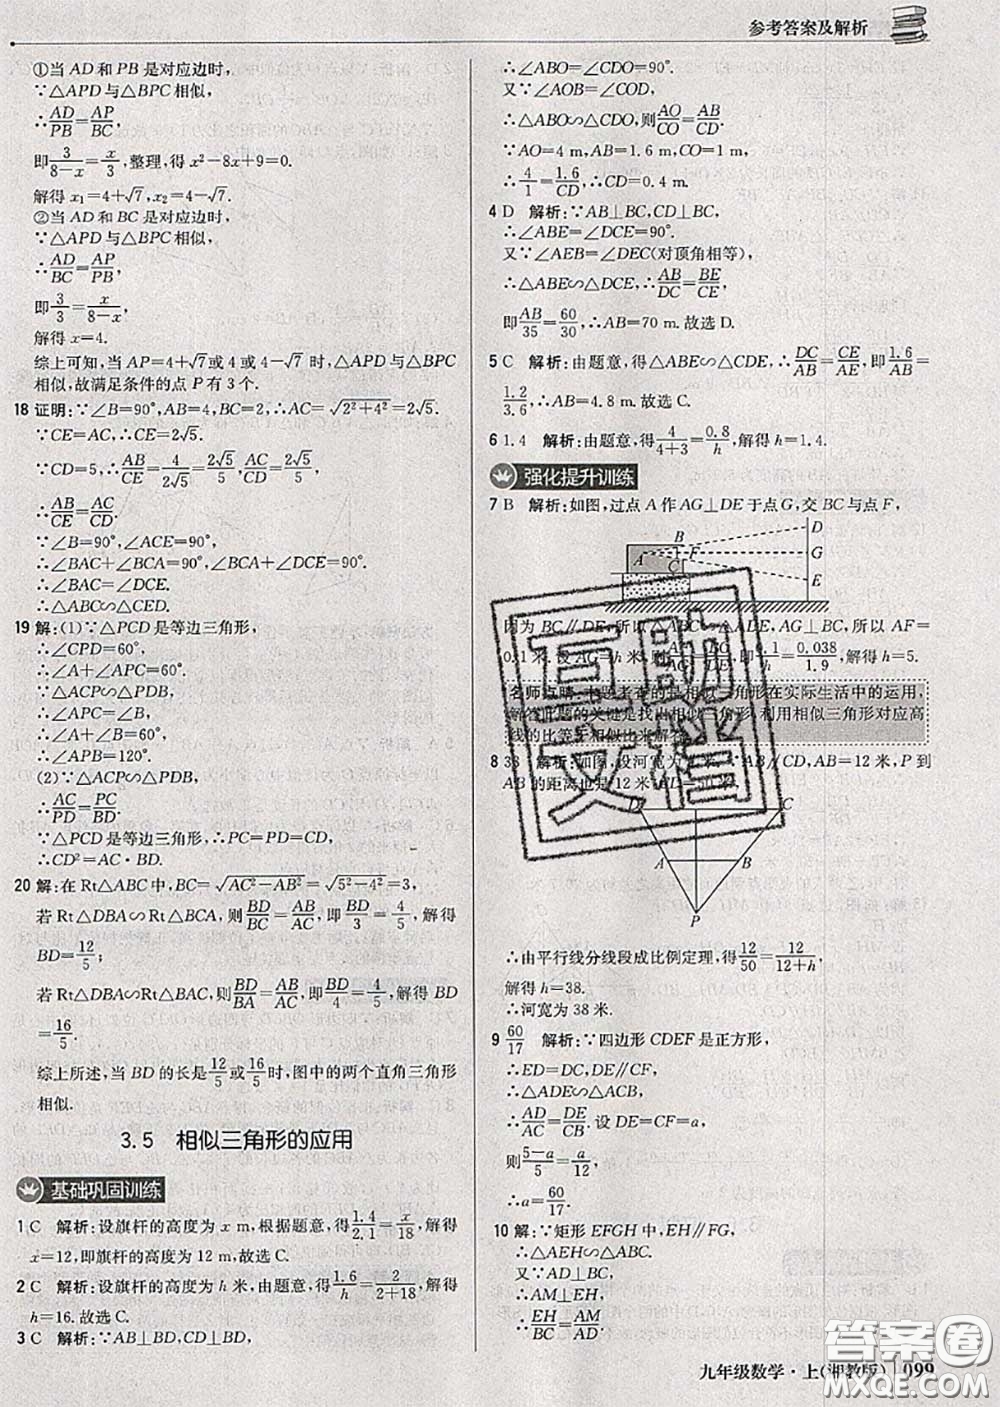 参考答案及解析
①当 AD 和 PB 是对应边时,
∵△APD 与△BPC 相似,
∴AD/PB=AP/BC,
即 3/(8-x)=x/3,整理,得 x²-8x+9=0.
解得 x₁=4+√7, x₂=4-√7.
②当 AD 和 BC 是对应边时,
∵△APD 与△BPC 相似,
∴AD/BC=AP/PB,
即 3/3=x/(8-x),
解得 x=4.
综上可知,当 AP=4+√7或 4 或 4-√7 时,△APD 与△BPC
相似,故满足条件的点 P 有 3 个.
18 证明:∵∠B=90°,AB=4,BC=2,∴AC=√(2²+4²)=2√5.
∵CE=AC,∴CE=2√5.
∵CD=5,∴AB/CE=4/(2√5)=2√5/5,AC/CD=2√5/5.
∴AB/CE=AC/CD.
∵∠B=90°,∠ACE=90°,
∴∠BAC+∠BCA=90°,∠BCA+∠DCE=90°.
∴∠BAC=∠DCE.
∴△ABC∽△CED.
19 解:(1)∵△PCD 是等边三角形,
∴∠CPD=60°.
∴∠A+∠APC=60°.
∵△ACP∽△PDB,
∴∠APC=∠B.
∴∠A+∠B=60°.
∴∠APB=120°.
(2)∵△ACP∽△PDB,
∴AC/PD=PC/BD.
∵△PCD 是等边三角形,∴PC=PD=CD,
∴CD²=AC·BD.
20 解:在 Rt△ABC 中,BC=√(AC²-AB²)=√(5²-4²)=3,
若 Rt△DBA∽Rt△BCA,则BD/BC=AB/AC,即BD/3=4/5,解得
BD=12/5;
若 Rt△DBA∽Rt△BAC,则BD/BA=AB/AC,即BD/4=4/5,解得 BD
=16/5.
综上所述,当 BD 的长是12/5或16/5时,图中的两个直角三角形
相似.
3.5 相似三角形的应用
基础巩固训练
1 C 解析:设旗杆的高度为 x m,根据题意,得1.4/2.1=x/18,解得
x=12,即旗杆的高度为 12 m,故选 C.
2 C 解析:设旗杆的高度为 h 米,由题意,得1.6/h=2/(2+18),解得
h=16.故选 C.
3 C 解析:∵AB⊥BD,CD⊥BD,
∴∠ABO=∠CDO=90°.
又∵∠AOB=∠COD,
∴△ABO∽△CDO,则AO/CO=AB/CD.
∵AO=4 m,AB=1.6 m,CO=1 m,
∴4/1=1.6/CD,∴CD=0.4 m.
4 D 解析:∵AB⊥BC,CD⊥BC,
∴∠ABE=∠DCE=90°.
又∵∠AEB=∠DEC(对顶角相等),
∴△ABE∽△DCE,∴AB/DC=BE/CE,
即AB/35=60/30,∴AB=70 m.故选 D.
5 C 解析:由题意,得△ABE∽△CDE,∴DC/AB=CE/AE,即1.6/AB=
1.2/3.6,∴AB=4.8 m.故选 C.
6 1.4 解析:由题意,得4/(4+3)=0.8/h,解得 h=1.4.
强化提升训练
7 B 解析:如图,过点 A 作 AG⊥DE 于点 G,交 BC 与点 F,
D
B
A F G
C
E
因为 BC∥DE,所以△ABC∽△ADE,AG⊥BC,所以 AF=
0.1 米,设 AG=h 米,则AF/AG=BC/DE,即0.1/h=0.038/1.9,解得 h=5.
名师点睛:本题考查的是相似三角形在实际生活中的运用,
解答此题的关键是找出相似三角形,利用相似三角形对应高
线的比等于相似比来解答.
8 38 解析:如图,设河宽为 h 米.∵AB∥CD,AB=12 米,P 到
AB 的距离也是 12 米,CD=50 米,
D C
A B
P
∴由平行线分线段成比例定理,得12/50=12/(12+h),
解得 h=38.
∴河宽为 38 米.
9 60/17 解析:∵四边形 CDEF 是正方形,
∴ED=DC,DE∥CF,
∴△ADE∽△ACB,
∴AD/AC=DE/CB.设 CD=a,
则(5-a)/5=a/12,
∴a=60/17.
10 解:∵矩形 EFGH 中,EH∥FG,
∴△AEH∽△ABC.
又∵AD⊥BC,
∴AM⊥EH,
∴EH/BC=AM/AD.
九年级数学·上(湘教版) 099
互助文档
答案圈
MXQE.COM